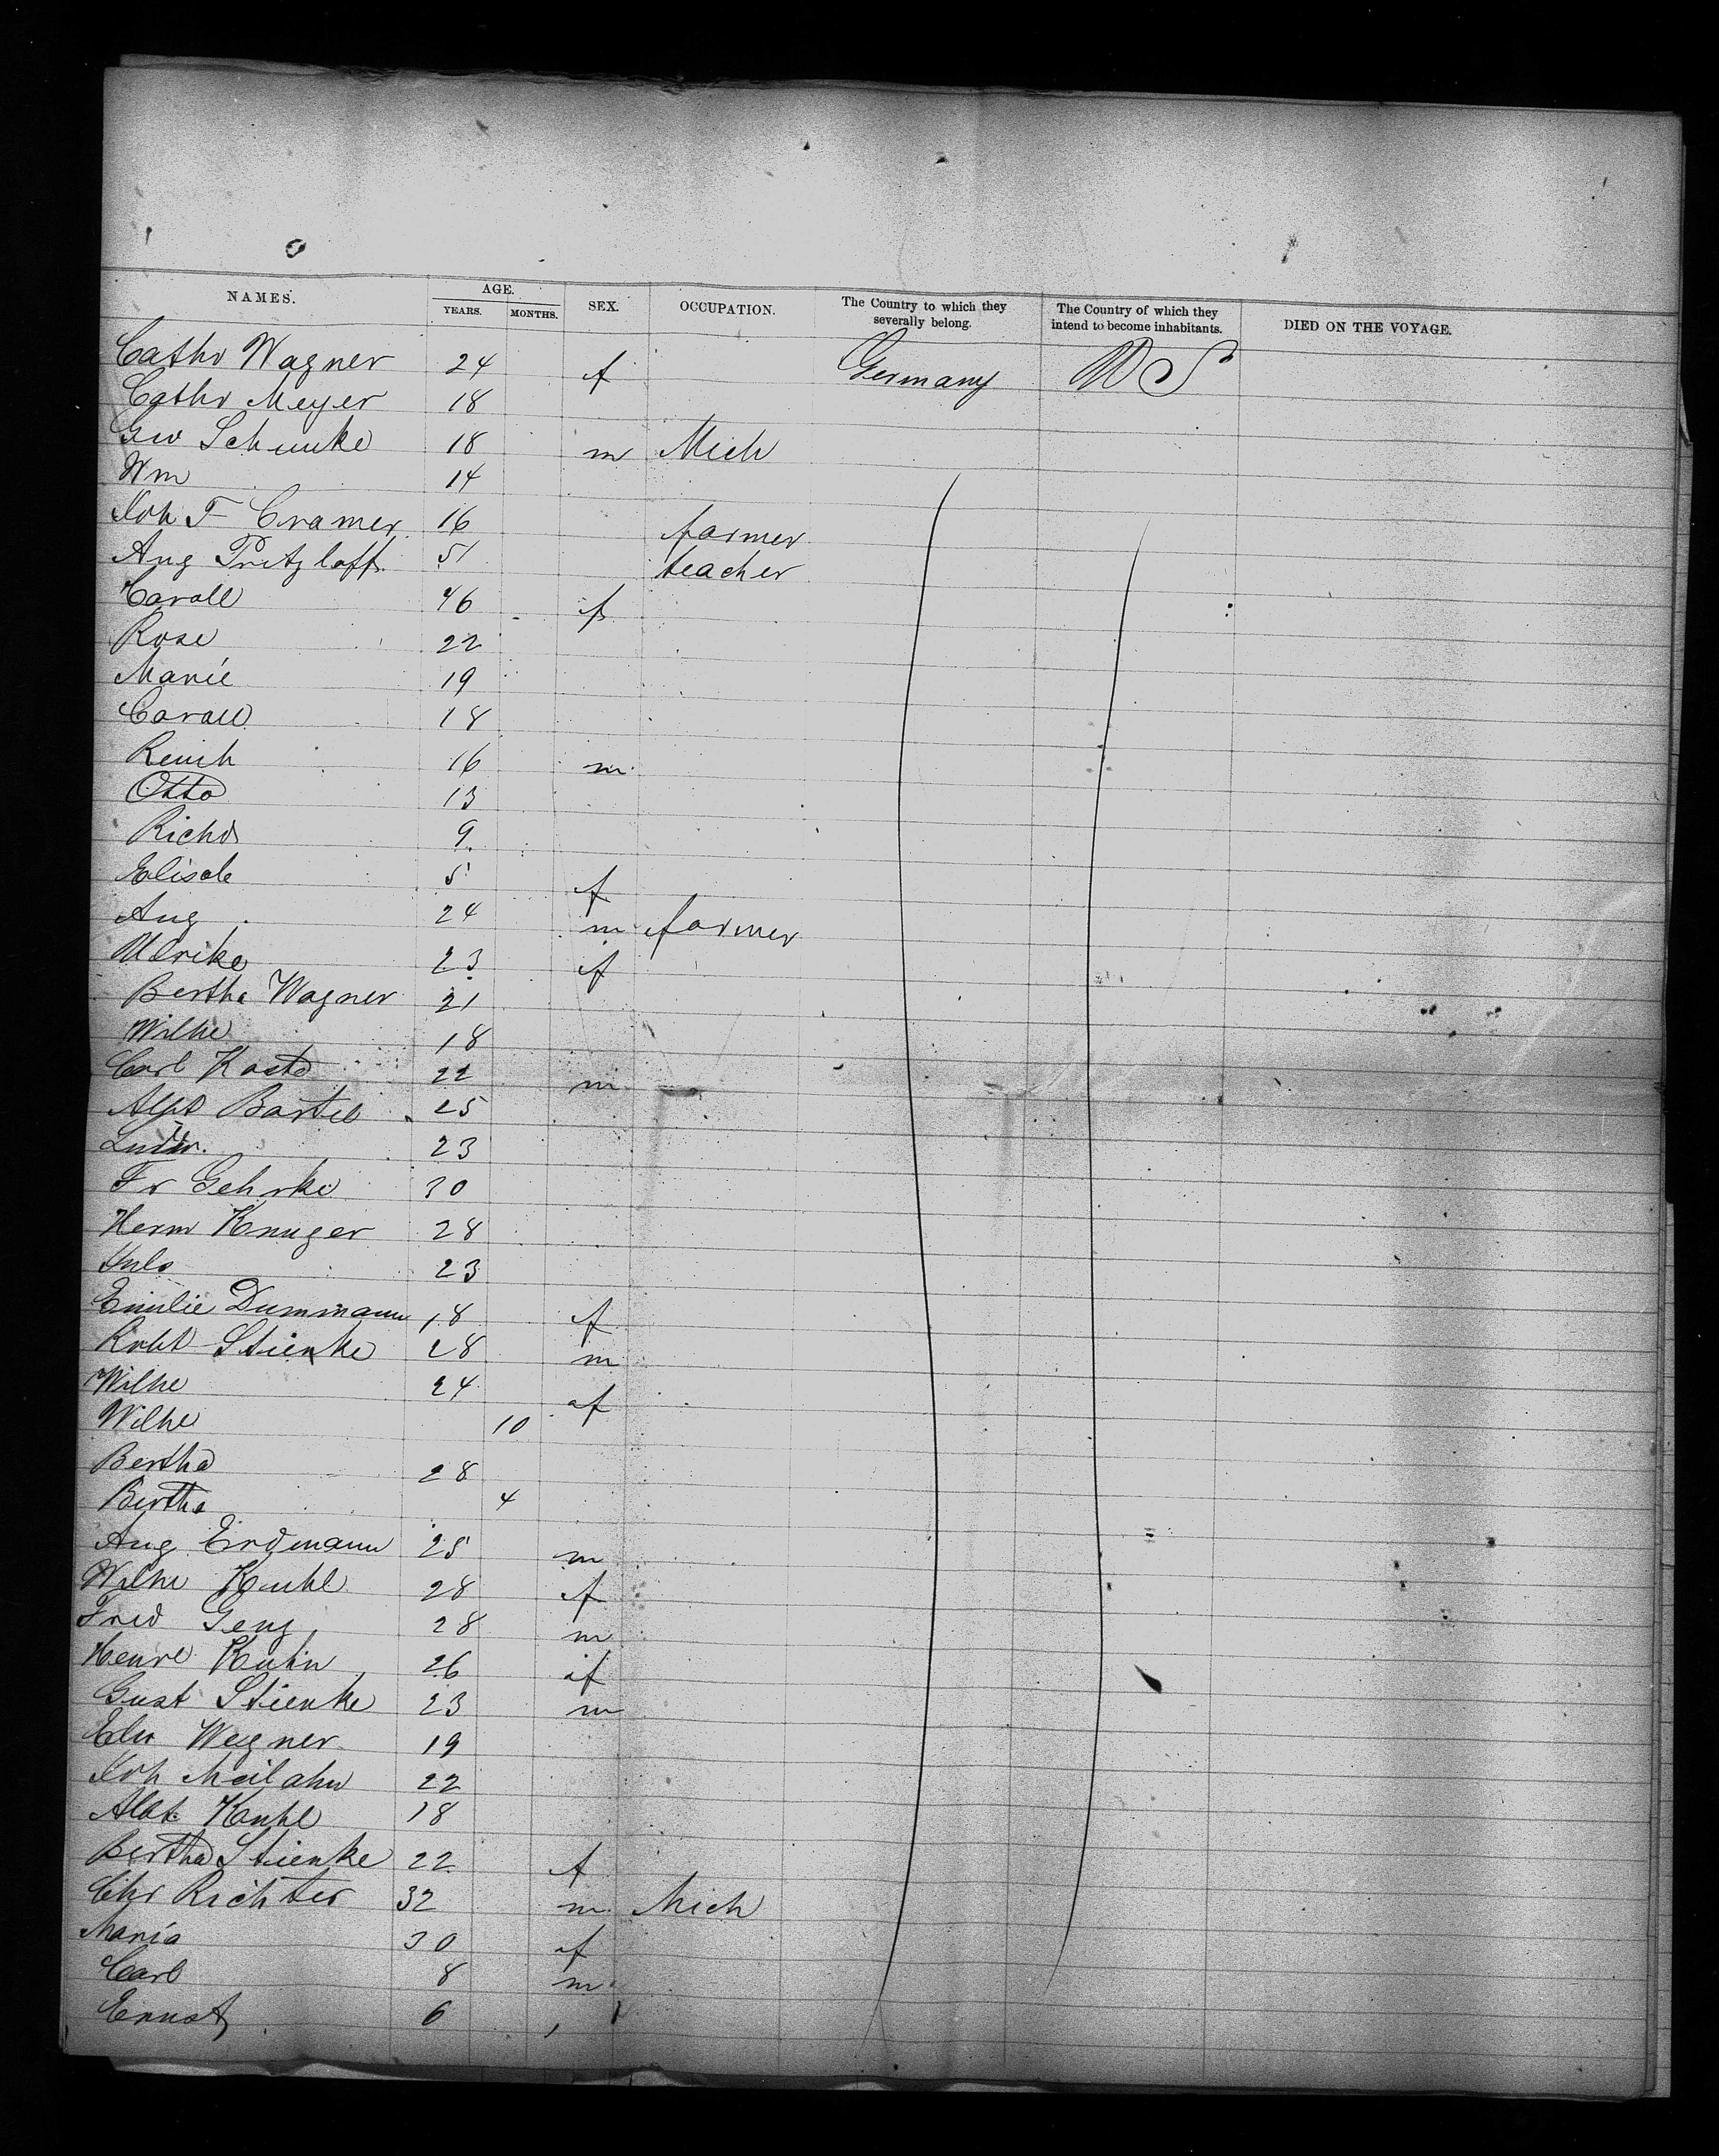 NAMES. AGE. YEARS. MONTHS. SEX. OCCUPATION. The Country to which they severally belong. The Country of which they intend to become inhabitants. DIED ON THE VOYAGE.
Cathr Wagner 24 f Germany U S
Cathr Meyer 18
Geo Schunke 18 m Mech
Wm 14
Joh F Cramer 16 farmer
Aug Pritzlaff 51 teacher
Caroll 46 f
Rose 22
Marie 19
Caroll 18
Reinh 16 m
Otto 13
Richd 9
Elisab 5 f
Aug 24 m farmer
Ulrike 23 f
Bertha Wagner 21
Wilhe 18
Carl Kosto 22 m
Alex Bartel 25
Ludw. 23
Fr Gehrke 30
Herm Kruger 28
Juls 23
Emilie Dummann 18 f
Robt Stienke 28 m
Wilhe 24 f
Wilhe 10
Bertha 28
Bertha 4
Aug Erdmann 25 m
Wilhe Kuhl 28 f
Fred Geng 28 m
Henre Kuhn 26 f
Gust Stienke 23 m
Edw Wegner 19
Joh Meilahn 22
Albt Kuhl 18
Bertha Stienke 22 f
Chr Richter 32 m Mech
Maria 30 f
Carl 8 m
Ernst 6